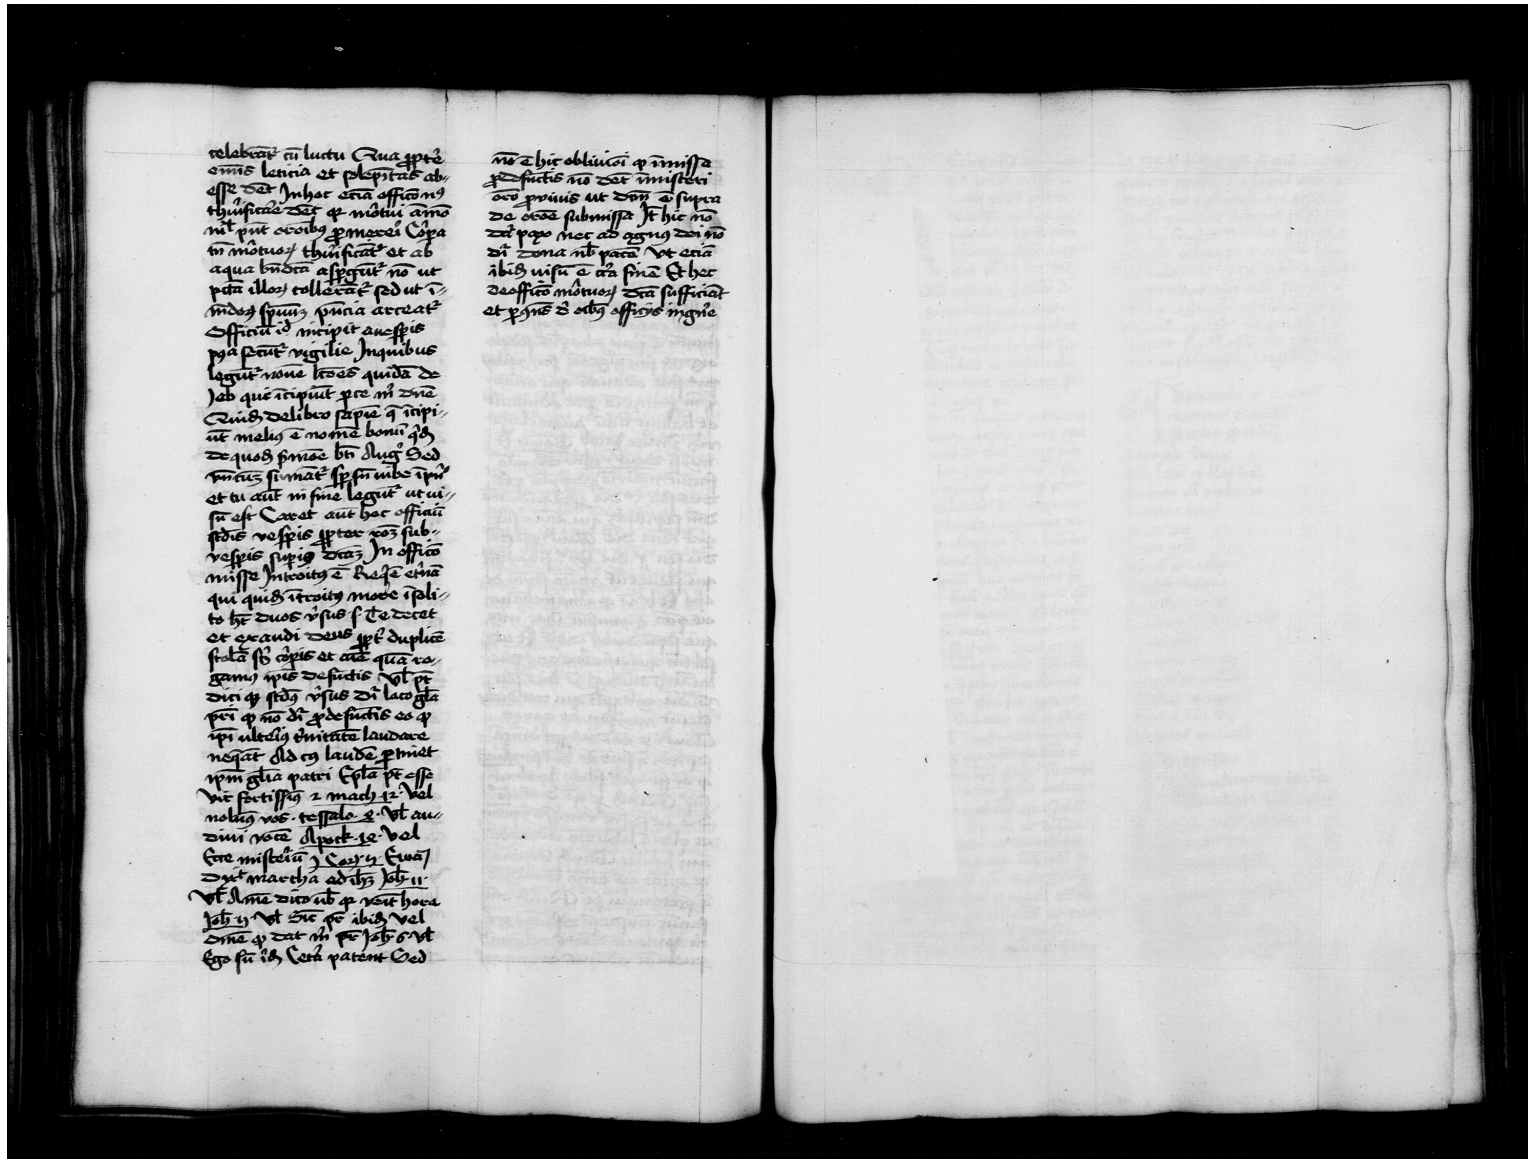 celebrat᷑ cū luctu Qua ꝓpt̄e
om̄is leticia et solēpnitas ab-
esse dēt Jn hoc eciā officō nō
thūrificāe dēt qꝛ mōtui ām̄o
nō pn̄t or̄oibus ꝓmerei Corꝑa
tn̄ mōtuoꝝ thūrificāt᷑ et ab
aqua bn̄dc̄a aspgūt᷑ nō ut
pctā illoꝝ tollerāt᷑ sed ut ī-
mūdoꝝ spūum pn̄cia arceat᷑
Officiū incipit a vespis
pꝰa secūt᷑ vigilie Jn quibus
legūt᷑ nouē lcōes quidā de
Job que īcipiūt parce m̄ dn̄e
Quidā de libro sapiē q̄ īcipi-
ūt meliꝰ ē nomē bonū qdā
de quodā s̄moē bt̄i Augꝰ Sed
et in fine legūt᷑ ut ui-
sū est Caret aut̄ hoc officiū
scdis vespis ꝓpter roēꝫ sub-
vespis supiꝰ dcāꝫ Jn officō
misse Jntroitꝰ ē Requiē et̄nā
qui quidē ītroitꝰ more īsoli-
to hꝫ duos v̄sus .s. Te decet
et exaudi deus ꝓpt̄ duplicē
stolā scꝫ corꝑis et aīe quā ro-
gamꝰ ip̄is defūctis Vl̄ pt̄
dici qꝛ scdꝰ v̄sus dr̄ loco gl̄a
pr̄i qꝛ nō dr̄ ꝓ defūctis eo qꝛ
ip̄i ulteiꝰ t̄nitatē laudare
neqāt Ad cꝰ laudē ꝑtinet
ip̄m gl̄ia patri Ep̄la pt̄ esse
Vir fortissimꝰ 2 mach 12. Vel
nolumꝰ vos . tessalo. 4. Vl̄ au-
diui vocē Apock. 14. Vel
Ecce misteriū 1 Coꝝ 15
Dixit martha ad ihm̄ Joh̄ 11.
Vl̄ Amē dico uob̄ qꝛ venit hora
Joh̄ 5. Vl̄ Sic pr̄ ibid Vel
Om̄e qꝛ dat m̄ pr̄ Joh̄ 6. Vl̄
Ego sū ibid Cet̄a patent Sed
nō ē hic obliuioī qꝛ ī missa
ꝓ defūctis nō dēt īmisceri
or̄o ꝓ viuis ut dcm̄ ē supra
de or̄oe submissa Jt̄ hic nō
dat᷑ pax nec ad agnus dei nō
dr̄ dona nob̄ pacē Vt eciā
ibid uisū ē cir̄a finē Et hec
de officō mōtuoꝝ dc̄a sufficiāt
et ꝑ ꝯn̄s de oībꝰ officijs in gn̄e